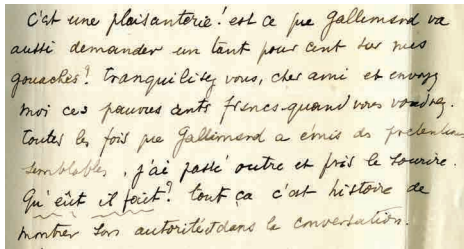 C'est une plaisanterie! est ce que Gallemard va
aussi demander un tant pour cent sur mes
gouaches? tranquilisez vous, cher ami et envoyez
moi ces pauvres cents francs quand vous voudrez.
toutes les fois que Gallemard a émis des pretentions
semblables, j'ai passé outre et pris le sourire.
Qu'eût il fait? tout ça c'est histoire de
montrer son autorité dans la conversation.